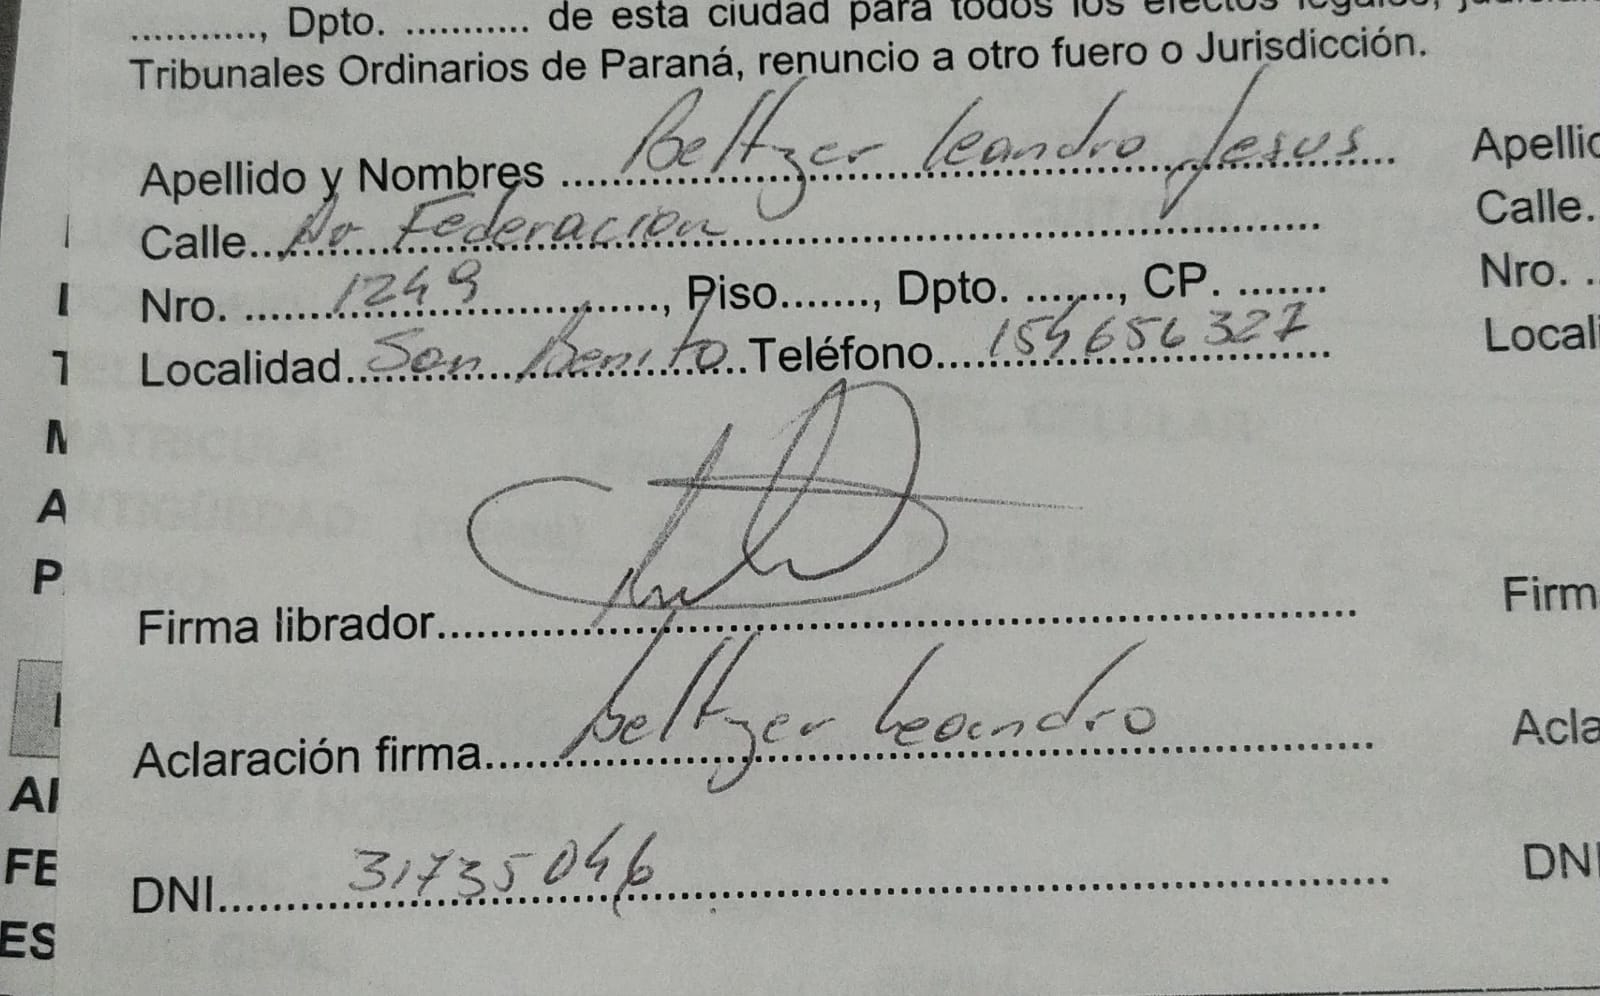 ..........., Dpto. ........... de esta ciudad para todos los efectos legales,
Tribunales Ordinarios de Paraná, renuncio a otro fuero o Jurisdicción.
Apellido y Nombres Beltzer Leandro Jesus
Calle Av Federacion
Nro. 1249, Piso......., Dpto. ......., CP. .......
Localidad San Benito Teléfono 154656327
Firma librador
Aclaración firma Beltzer Leandro
DNI 31735046
Calle.
Nro. ..
DNI
MATRICULA:
CELULAR
P
FE
ES